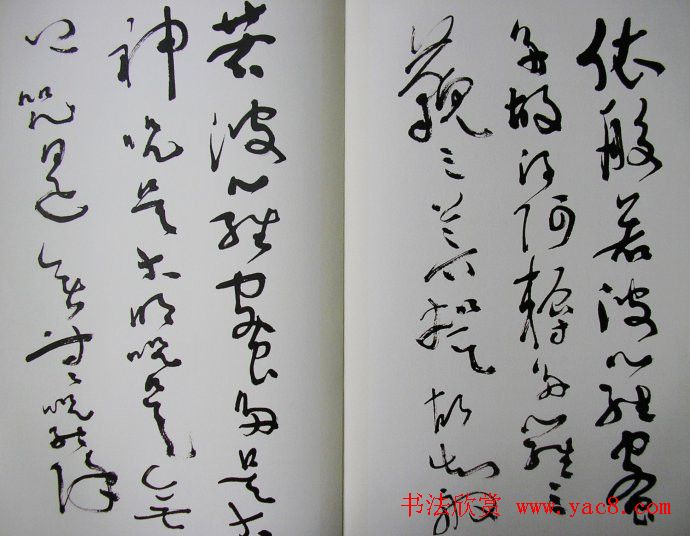 依般若波羅蜜
多故得阿耨多羅三
藐三菩提故知般
若波羅蜜多是大
神咒是大明咒是無
上咒是無等等咒能除
书法欣赏 www.yac8.com